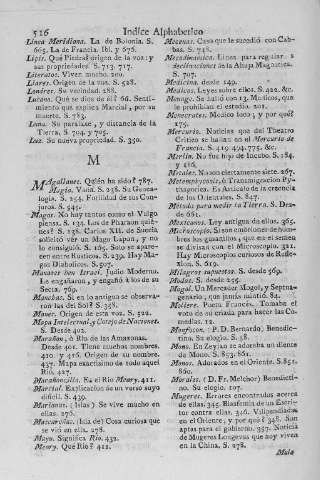 526 Indice Alphabetico
Linea Meridiana. La de Bolonia. S.
665. La de Francia. Ibi. y 676.
Lipis. Qué Piedra? origen de la voz: y
sus propiedades. S. 713. 717.
Literatos. Viven mucho. 200.
Llares. Origen de la voz. S. 528.
Londres. Su vecindad. 288.
Lucano. Qué se dice de él? 66. Senti-
miento que explica Marcial, por su
muerte. S. 783.
Luna. Su paralaxe, y distancia de la
Tierra. S. 704. y 705.
Luz. Su nueva propiedad. S. 350.
M
Magallanes. Quién ha sido? 787.
Magia. Vana. S. 238. Su Genea-
logia. S. 254. Futilidad de sus Con-
juros. S. 545.
Magos. No hay tantos como el Vulgo
piensa. S. 134. Los de Pharaon quié-
nes? S. 138. Carlos XII. de Suecia
solicitó ver un Mago Lapon, y no
lo consiguió. S. 165. Solo se apare-
cen entre Rusticos. S. 239. Hay Ma-
gos Diabolicos. S. 757.
Manases ben Israel. Judio Moderno.
Le engañaron, y engañó á los de su
Secta. 769.
Manchas. Si en lo antiguo se observa-
ron las del Sol? S. 338.
Maner. Origen de esta voz. S. 522.
Mapa Intelectual, y Cotejo de Naciones.
S. Desde 402.
Marañon, ó Rio de las Amazonas.
Desde 401. Tiene muchos nombres.
410. y 416. Origen de su nombre.
437. Mapa exactisimo de todo aquel
Rio. 427.
Marañoncillo. Es el Rio Meary. 411.
Marcial. Explicacion de un verso suyo
dificil. S. 439.
Marianas. (Islas) Se vive mucho en
ellas. 276.
Mascariñas. (Isla de) Cosa curiosa que
se vió en ella. 278.
Mayo. Significa Rio. 432.
Meary. Qué Rio? 411.
Mecenas. Casa que le sucedió con Cab-
bas. S. 748.
Mecanicamente. Linea para reglar
declinaciones de la Aguja Magnetica.
S. 707.
Medicina. desde 149.
Medicos. Leyes sobre ellos. S. 422. &c.
Mengo. Se juntó con 13. Medicos, que
le prohibian el estudio. 201.
Menecrates. Medico loco, y por qué?
275.
Mercurio. Noticias que del Theatro
Critico se hallan en el Mercurio de
Francia. S. 419. 494. 775. &c.
Merlin. No fue hijo de Incubo. S. 184.
y 216.
Metales. No son ciertamente siete. 267.
Metempsycosis, ó Transmigracion Py-
thagorica. Es Articulo de la creencia
de los Orientales. S. 847.
Método para medir la Tierra. S. Des-
de 661.
Mexicanos. Ley antigua de ellos. 365.
Microscopios. Si son embriones de hom-
bres los gusanitos, que en el semen
se divisan con el Microscopio. 321.
Hay Microscopios curiosos de Refle-
xion. S. 619.
Milagros supuestos. S. desde 569.
Modas. S. desde 255.
Mogol. Un Mercader Mogol, y Septua-
genario, que jamás mintió. 84.
Moliere. Poeta Francés. Tomaba el
voto de su criada para hacer las Co-
medias. 12.
Mongfaucon. (P. D. Bernardo) Benedic-
tino. Su elogio. S. 38.
Mono. En Zeylan se adoraba un diente
de Mono. S. 853. 861.
Monos. Adorados en el Oriente. S. 851.
860.
Morales. (D. Fr. Melchor) Benedicti-
no. Su elogio. 107.
Mugeres. Errores encontrados acerca
de ellas. 345. Blasfemia de un Escri-
tor contra ellas. 346. Vilipendiadas
en el Oriente; y por qué? 345. Son
aptas para el gobierno. 357. Noticia
de Mugeres Longevas que aun viven
en la China. S. 278.
Mula